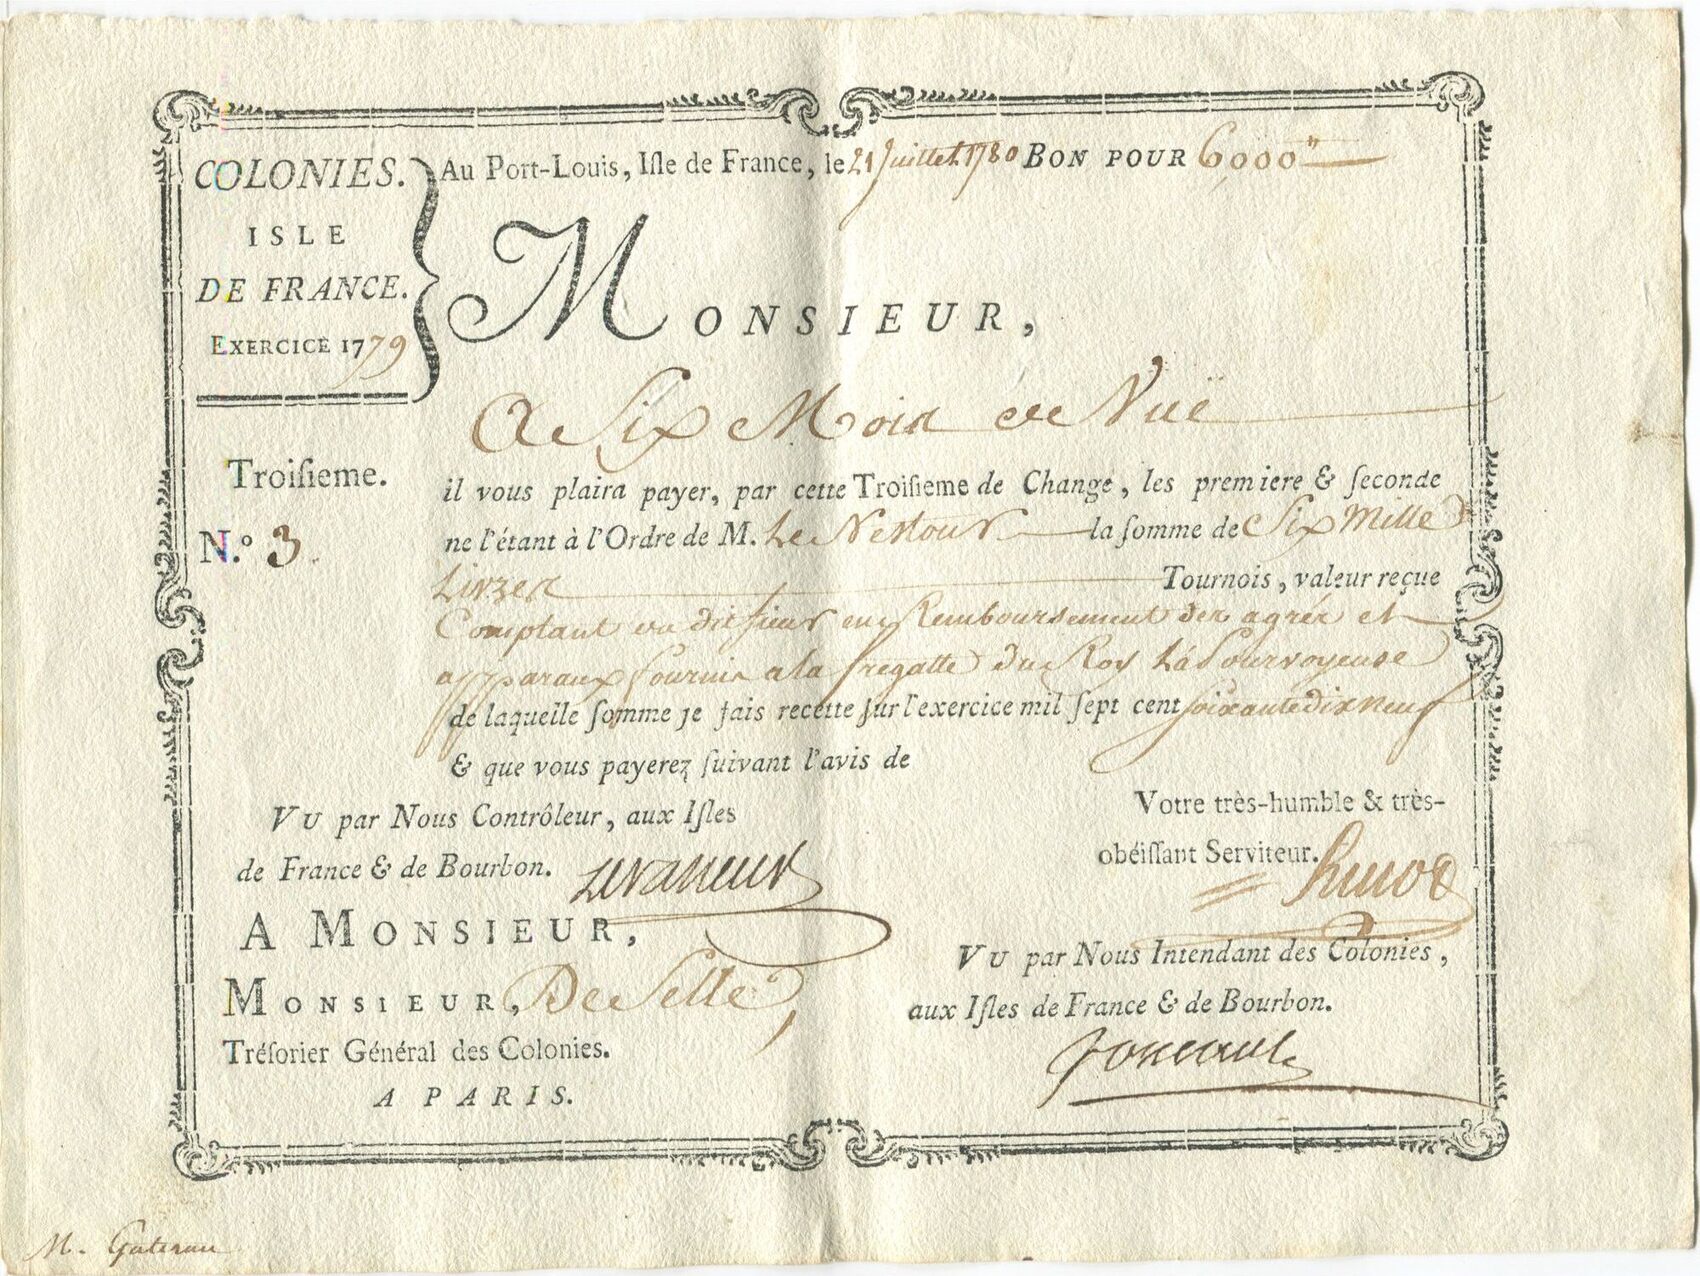 COLONIES.
ISLE
DE FRANCE.
EXERCICE 1779
Au Port-Louis, Isle de France, le 21 Juillet 1780 BON POUR 6000"
MONSIEUR,
A Six Mois de Vuë
Troisieme.
N.º 3
il vous plaira payer, par cette Troisieme de Change, les premiere & seconde
ne l'étant à l'Ordre de M. Le la somme de Six Mille
Livres Tournois, valeur reçue
Comptant du dit Sieur en Remboursement des agrés et
apparaux fournis a la fregatte du Roy La Pourvoyeuse
de laquelle somme je fais recette sur l'exercice mil sept cent soixante dix neuf
& que vous payerez suivant l'avis de
Votre très-humble & très-
obéissant Serviteur.
VU par Nous Contrôleur, aux Isles
de France & de Bourbon. Levasseur
A MONSIEUR,
MONSIEUR, De Selle,
Trésorier Général des Colonies.
A PARIS.
VU par Nous Intendant des Colonies,
aux Isles de France & de Bourbon.
Foucault
M.